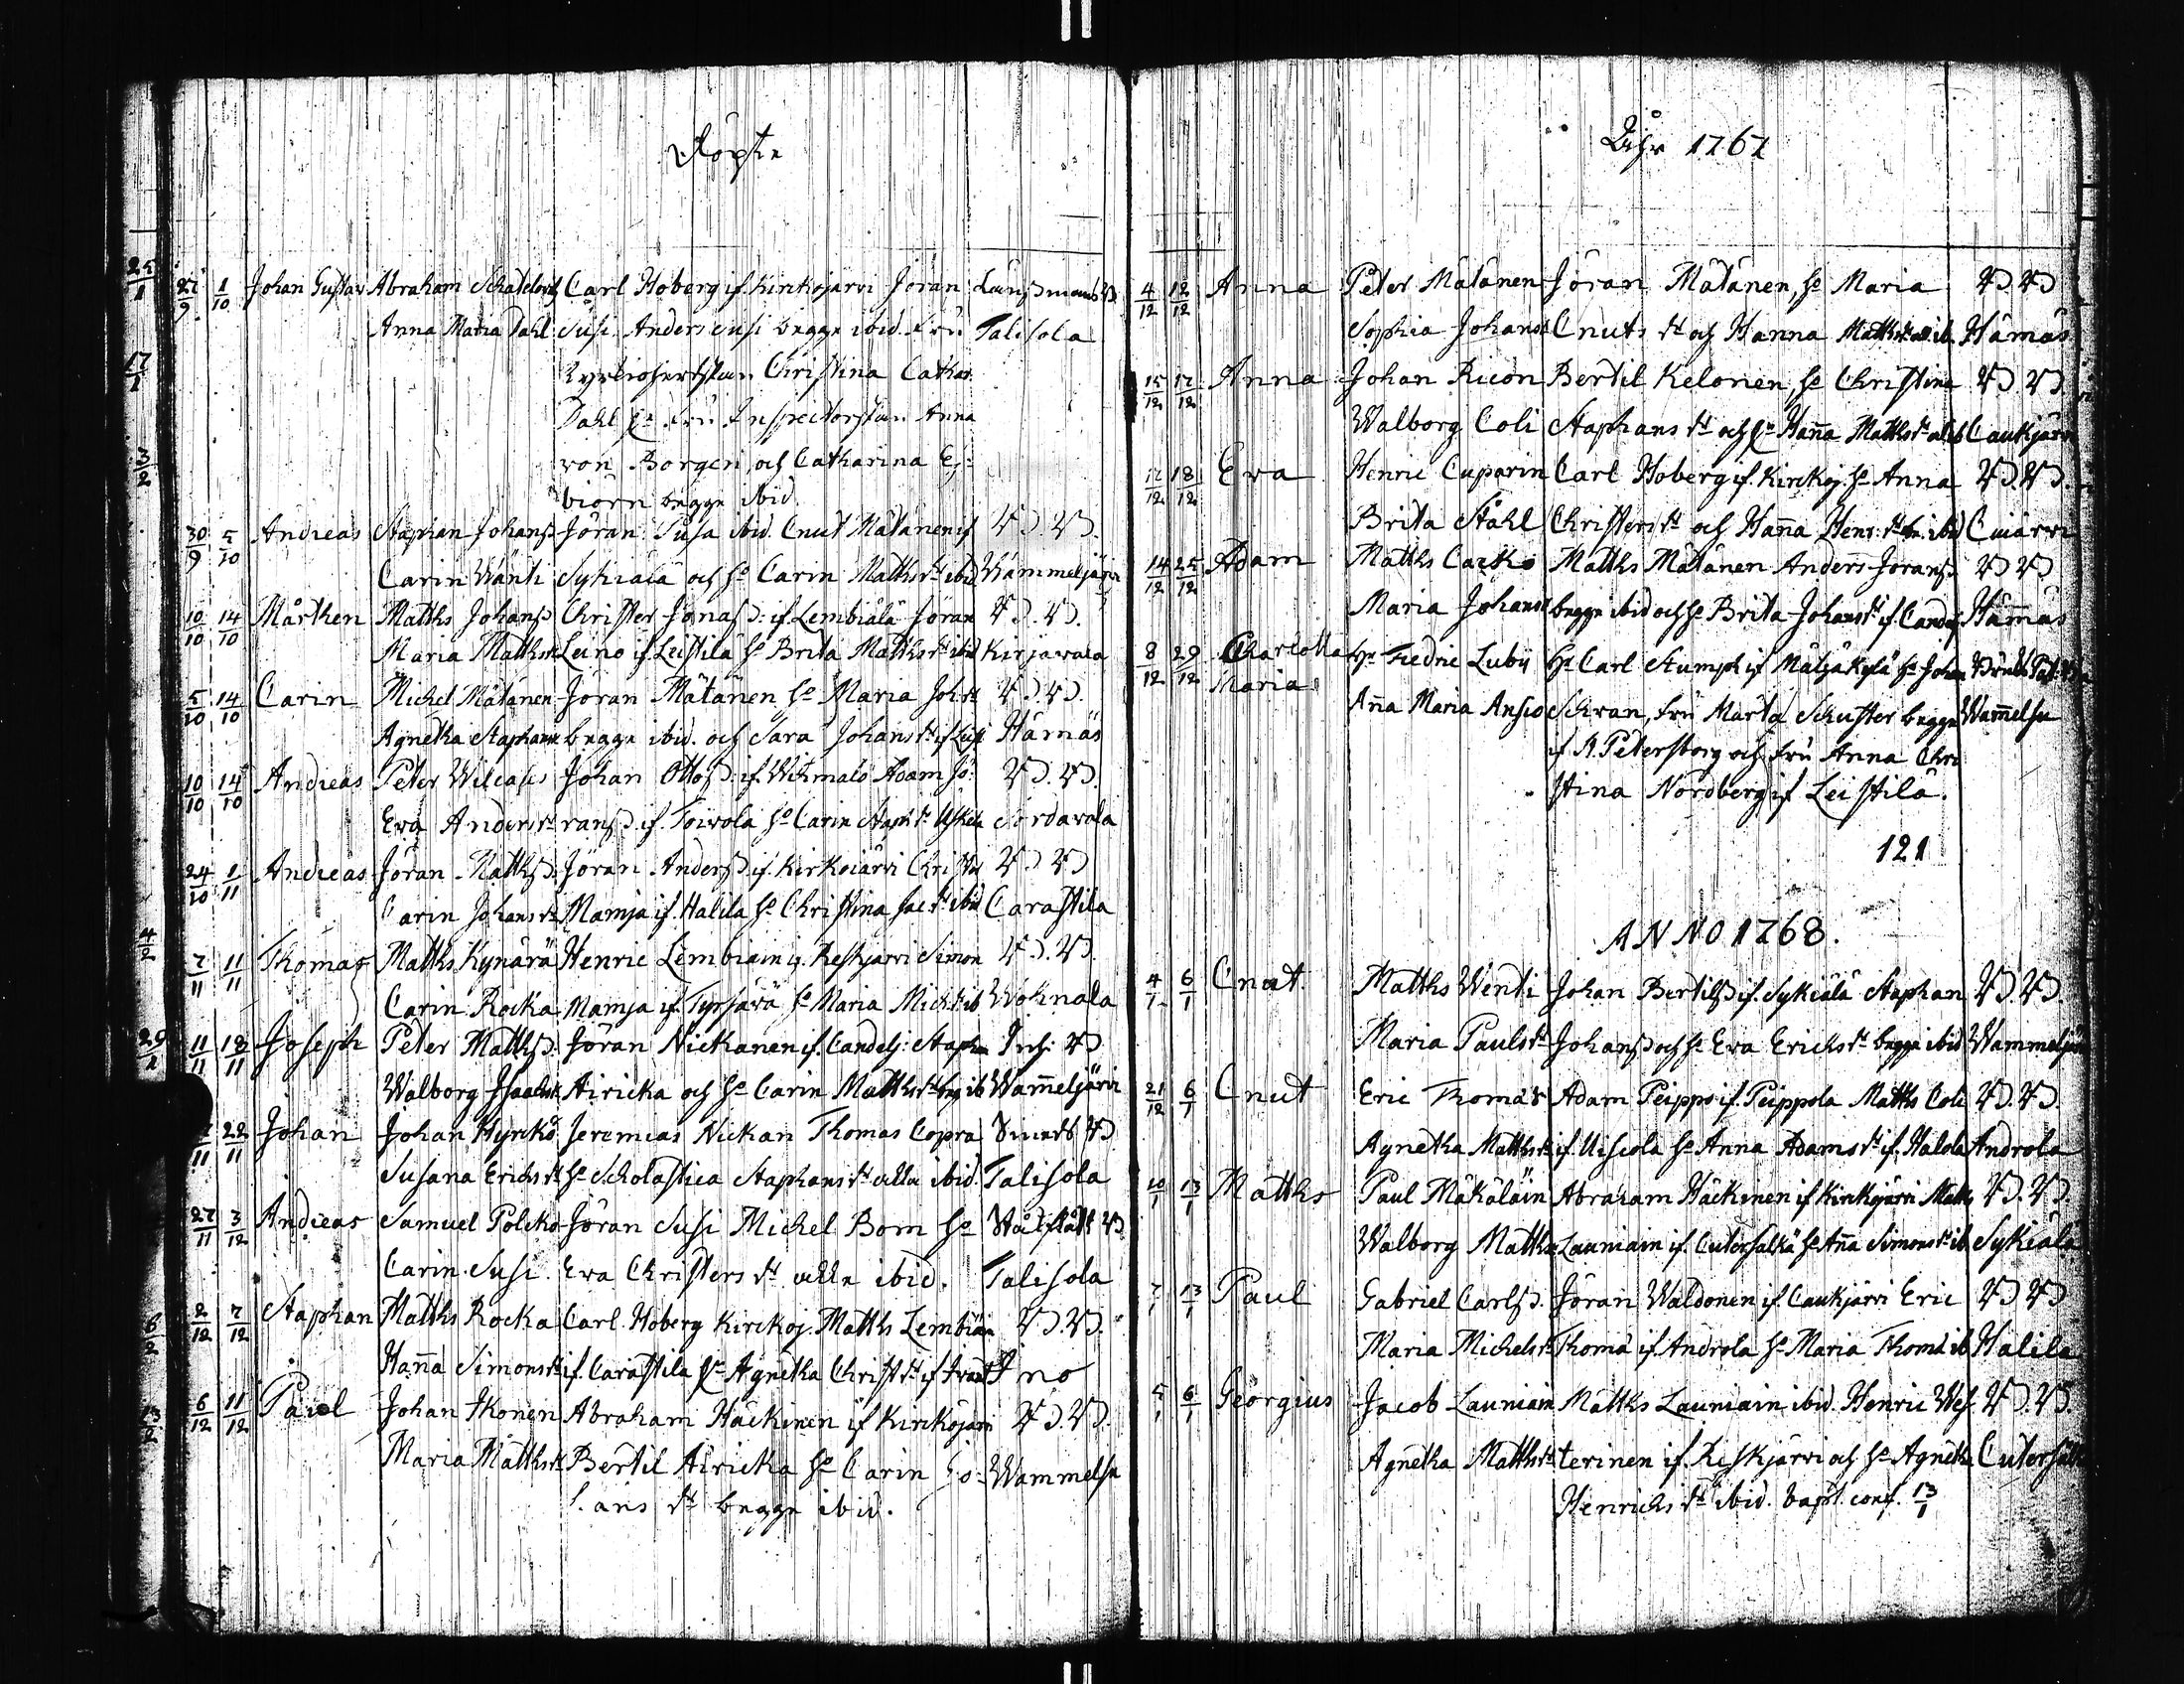 Döpte
27/9 1/10 Johan Gustav Abraham Carl Hoberg if. Kirkojärvi Jöran
Anna Maria Dahl Susi Anders Susi begge ibid. Fru Talisola
Christina Cathar
Dahl Fru Inspectorskan Anna
von Borgen och Catharina
biörn begge ibid
30/9 5/10 Andreas Staphan Johanss Jöran Susa ibid. Cnut Mätänen if
Carin Wänti Sykiälä och h:o Carin Matths dr ibid Wammeljärvi
10/10 14/10 Mårthen Matths Johanss Christer Jonass: if Lembiälä Jöran
Maria Matths dr Leino if Leistilä h:o Brita Matths dr ibid Kirjavala
5/10 14/10 Carin Michel Mätänen Jöran Mätänen h:o Maria Joh dr
Agnetha Staphans begge ibid. och Sara Johans dr if Hämäs
10/10 14/10 Andreas Peter Wilcakes Johan Ottoss: if. Wihmalo Adam Jö:
Eva Anders dr ranss. if. Toivola h:o Carin Staph dr Sordavala
24/10 1/11 Andreas Jöran Matthss. Jöran Anderss. if. Kirkoiärvi Christer
Carin Johans dr Mamja if. Halila h:o Christina ibid Carastila
7/11 11/11 Thomas Matths Kynärä Henric Lembiain if. Keskjärvi Simon
Carin Rocka Mamja if. Tyrsävä h:o Maria Mich dr ib Wohnala
11/11 18/11 Joseph Peter Matthss. Jöran Nickanen if. Candelj: Staphan Inh:
Walborg Isaachs dr Airicka och h:o Carin Matths dr ib Wam̄eljärvi
22/11 Johan Johan Hyrckö Jeremias Nickan Thomas Copra
Susana Erichs dr h:o Scholastica Staphans dr alla ibid. Talisola
27/11 3/12 Andreas Samuel Polcko Jöran Susi Michel Bom h:o
Carin Susi Eva Christers dr alla ibid. Talisola
2/12 7/12 Staphan Matths Rocka Carl Hoberg Kirckoj. Matths Lembiäin
Han̄a Simons dr if. Carastila h:o Agnetha Christ dr if Ino
6/12 11/12 Paul Johan Ikonen Abraham Häckinen if Kirckojärvi
Maria Matths dr Bertil Airicka h:o Carin Jo- Wammelsu
hans dr begge ibid.
25/1
17/1
3/2
4/2
29/1
6/2
13/2
Åhr 1767
4/12 12/12 Anna Peter Mätänen Jöran Mätänen, h:o Maria
Sophia Johans dr Cnuts dr och Hanna Matths dr all ib. Hämäs
15/12 17/12 Anna Johan Ricon Bertil Kelonen, h:o Christina
Walborg Coli Staphans dr och h:o Han̄a Matths dr Caukjärvi
17/12 18/12 Eva Henric Cuparin Carl Hoberg if. Kirckoj. h:o Anna
Brita Stähl Christers dr och Han̄a Henr: dr ibid Cuiärvi
14/12 25/12 Adam Matths Carko Matths Mätänen Anders Jöranss
Maria Johans dr begge ibid och h:o Brita Johans dr if. Hämäs
8/12 29/12 Charlotta Hr Fredric Luby Hr Carl Stumph if Mäljäkylä
Maria An̄a Maria Ansio Schran, Fru Marta Schuster begge Wam̄elsu
if St Petersborg och Fru Anna Chri
stina Nordberg if Leistilä.
121
ANNO 1768.
4/1 6/1 Cnut Matths Wenti Johan Bertilss if. Sykiälä Staphan
Maria Pauls dr Johanss och h:o Eva Erichs dr begge ibid Wammeljärvi
21/12 6/1 Cnut Eric Thomä Adam Peippo if. Peippola Matths Coli
Agnetha Matths dr if. Uiscola h:o Anna Adams dr if. Halola Androla
10/1 13/1 Matths Paul Mäkäläin Abraham Häckinen if Kirckojärvi Matths
Walborg Matths dr Launiain if. Cutersalkä h:o An̄a Simons dr ib Sykiälä
7/1 13/1 Paul Gabriel Carlss. Jöran Waldonen if. Caukjärvi Eric
Maria Michels dr Thomä if Androla h:o Maria Thomä ib Halila
5/1 6/1 Georgius Jacob Launiain Matths Launiain ibid. Henric Wes
Agnetha Matths dr terinen if. Keskjärvi och h:o Agnetha Cutersalk
Henrichs dr ibid. bapt. conf. 13/1